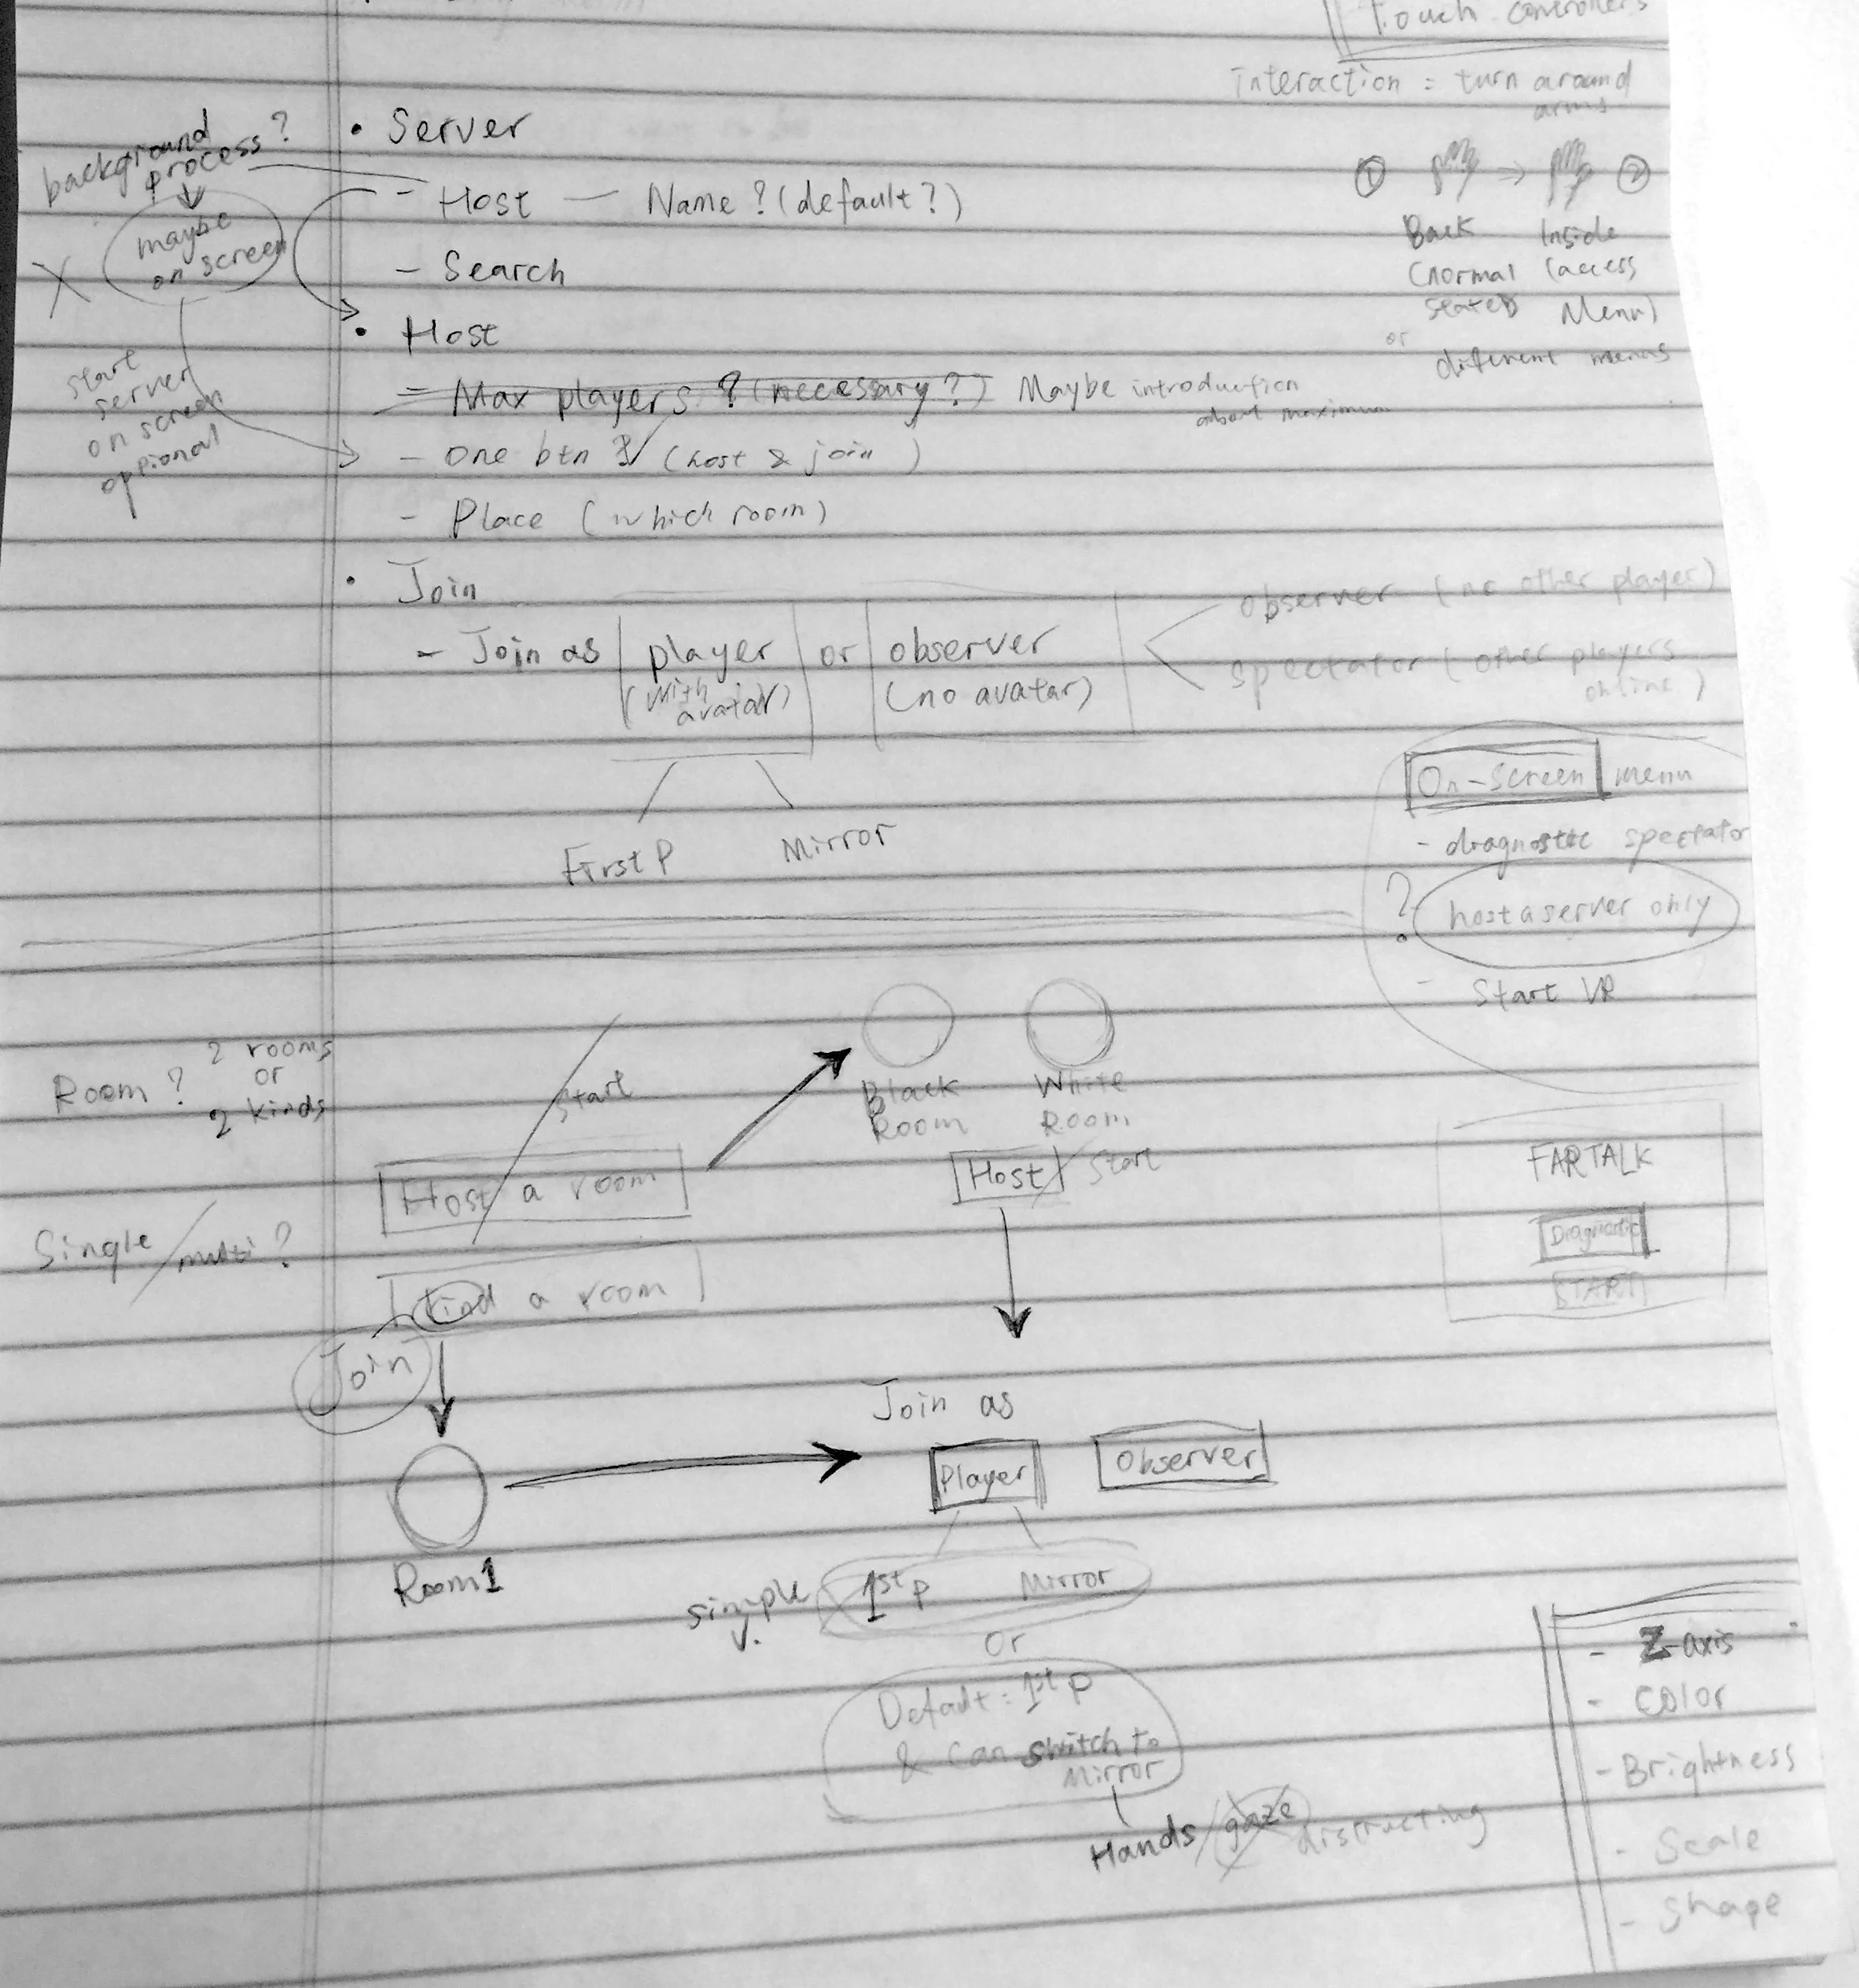 Touch controllers
Interaction = turn around
arms
① → ②
Back Inside
(normal (access
states Menu)
or
different menus
background
process?
maybe
on screen
X
start
server
on screen
optional
• Server
- Host — Name ? (default?)
- Search
• Host
- Max players ? (necessary?) Maybe introduction
about maximum
- One btn (host & join)
- Place (which room)
• Join
- Join as player or observer
(with
avatar)
(no avatar)
observer (no other player)
spectator (other players
online)
First P Mirror
On-Screen menu
- diagnostic spectator
? host a server only
- Start VR
Room ? 2 rooms
or
2 kinds
Single/multi ?
Start
Host a room
Find a room
Join
Black White
Room Room
Host Start
FARTALK
Diagnostic
START
Room 1
Join as
Player Observer
simple
1st p Mirror
Or
Default : 1st p
& can switch to
Mirror
Hands / gaze distracting
- Z-axis
- Color
- Brightness
- Scale
- Shape